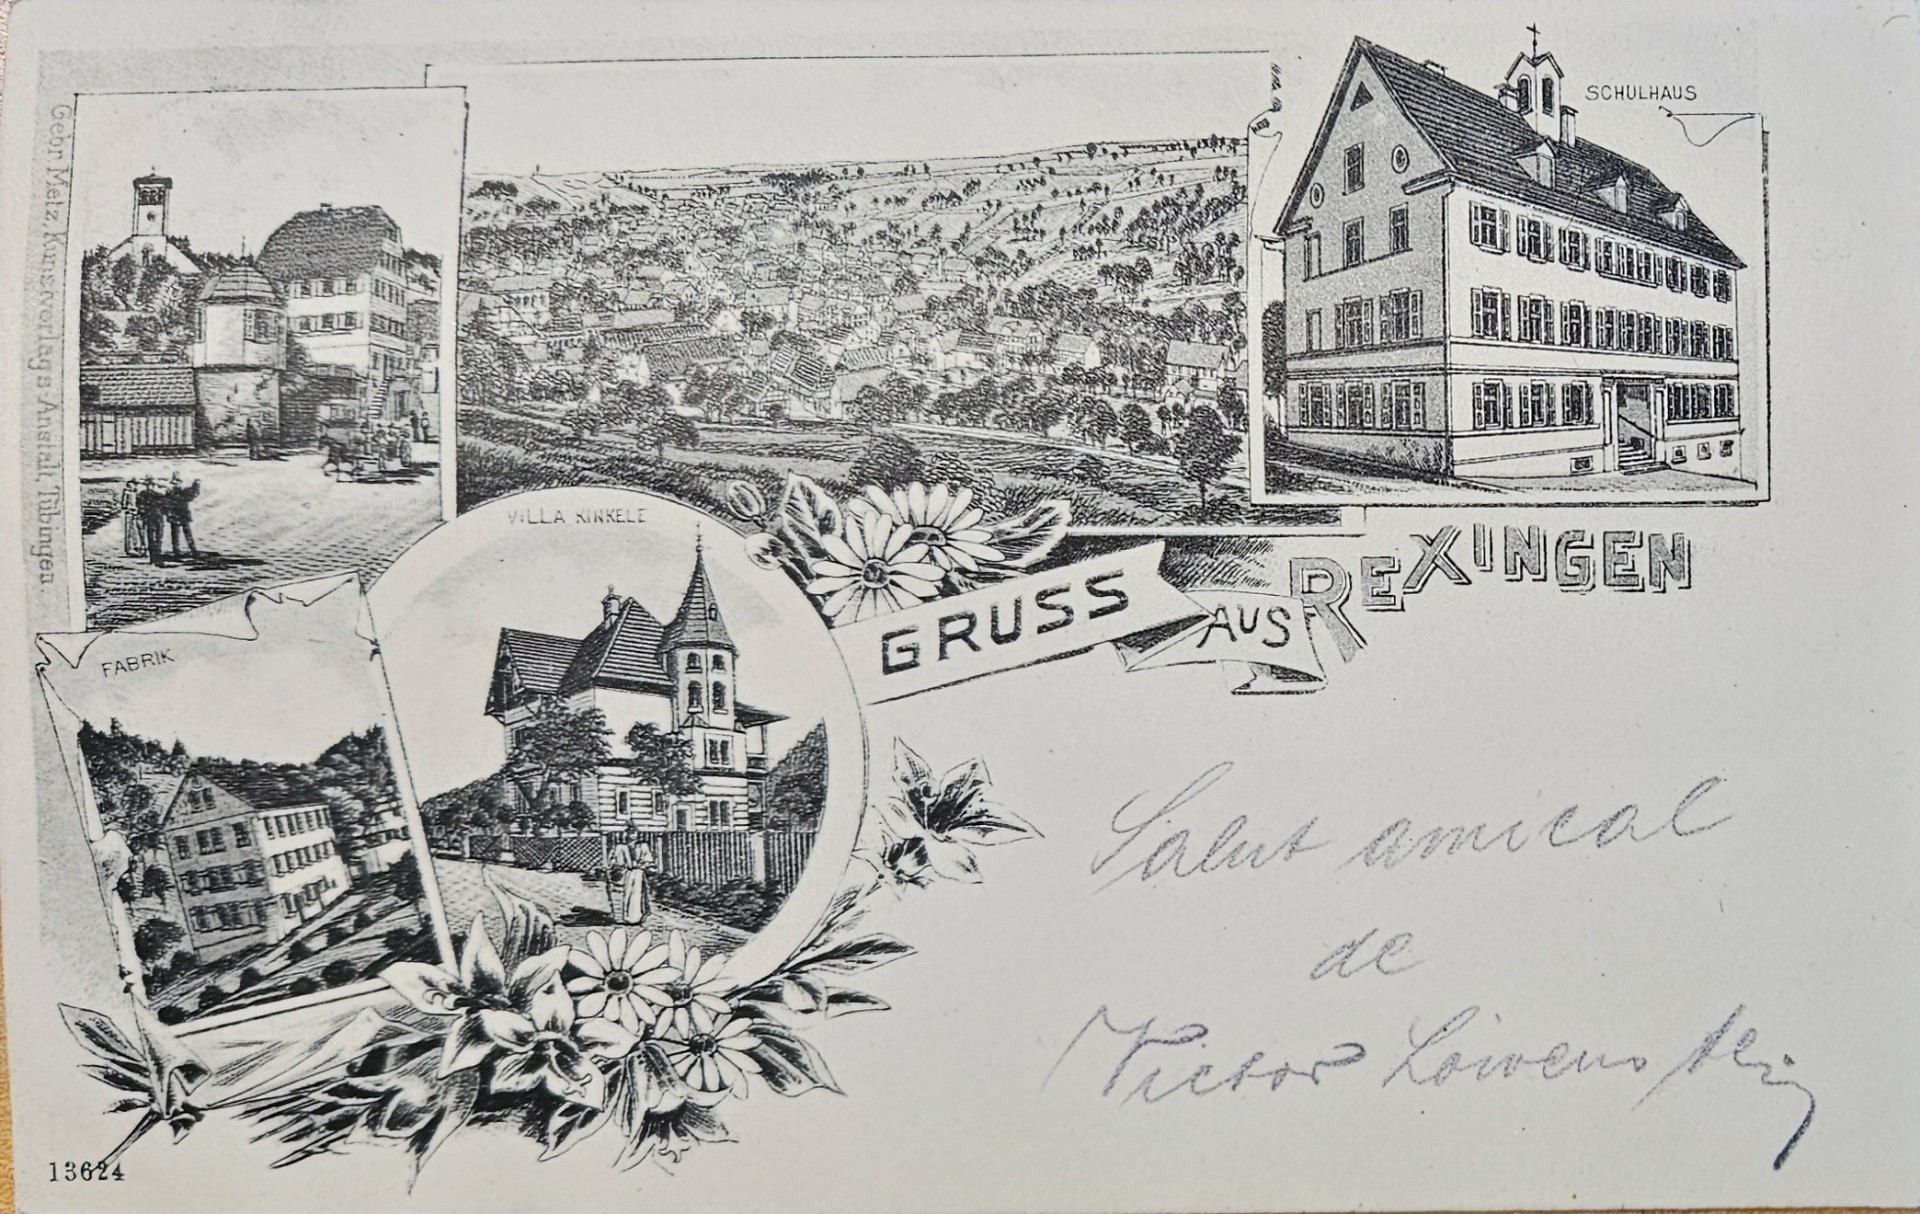 Gebr. Metz, Kunstverlags-Anstalt, Tübingen.
SCHULHAUS
VILLA KINKELE
GRUSS AUS REXINGEN
FABRIK
Salut amical
de
Victor Löwenstein
13624